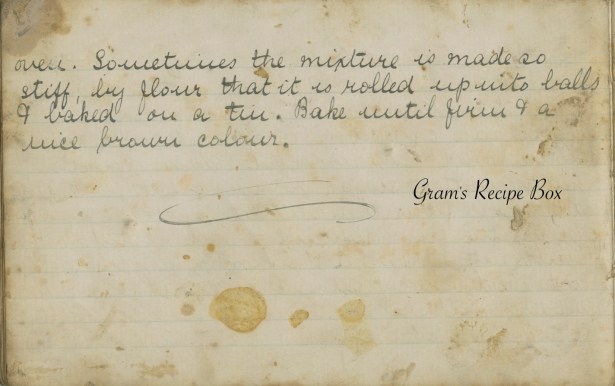 oven. Sometimes the mixture is made so
stiff, by flour that it is rolled up into balls
& baked on a tin. Bake until firm & a
nice brown colour.
Gram's Recipe Box